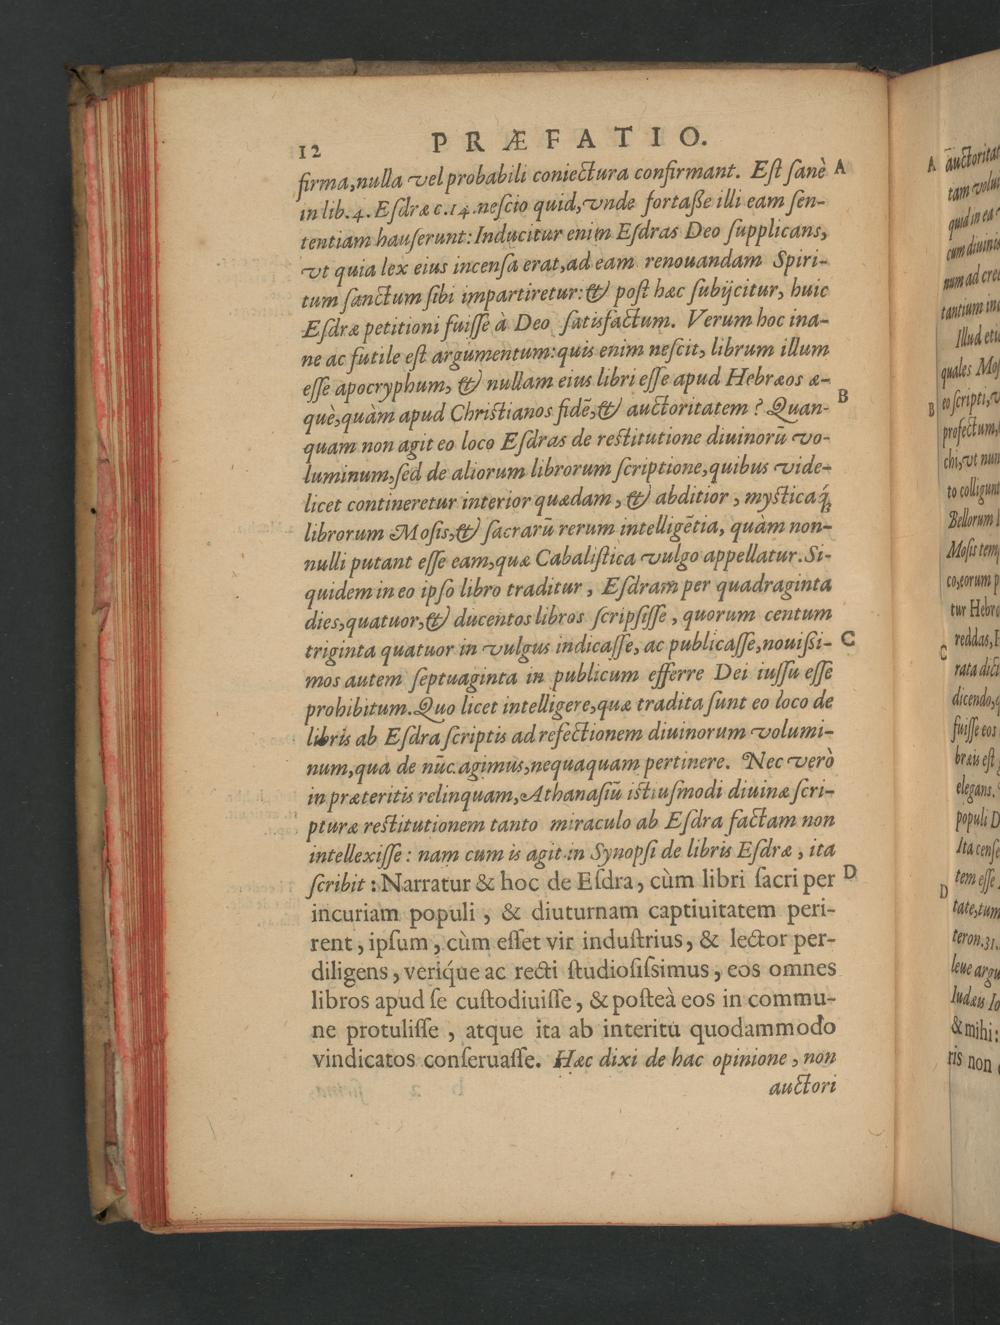 12 PRÆFATIO.
firma,nulla vel probabili coniectura confirmant. Est sanè A
in lib.4. Esdræ c.14.nescio quid,vnde fortaße illi eam sen-
tentiam hauserunt: Inducitur enim Esdras Deo supplicans,
vt quia lex eius incensa erat,ad eam renouandam Spiri-
tum sanctum sibi impartiretur: & post hæc subijcitur, huic
Esdræ petitioni fuisse à Deo satisfactum. Verum hoc ina-
ne ac futile est argumentum:quis enim nescit, librum illum
esse apocryphum, & nullam eius libri esse apud Hebræos æ-
què,quàm apud Christianos fidē,& auctoritatem? Quan- B
quam non agit eo loco Esdras de restitutione diuinorū vo-
luminum,sed de aliorum librorum scriptione,quibus vide-
licet contineretur interior quædam, & abditior, mysticaq́;
librorum Mosis,& sacrarū rerum intelligētia, quàm non-
nulli putant esse eam,quæ Cabalistica vulgo appellatur. Si-
quidem in eo ipso libro traditur, Esdram per quadraginta
dies,quatuor,& ducentos libros scripsisse, quorum centum
triginta quatuor in vulgus indicasse, ac publicasse,nouißi- C
mos autem septuaginta in publicum efferre Dei iussu esse
prohibitum. Quo licet intelligere,quæ tradita sunt eo loco de
libris ab Esdra scriptis ad refectionem diuinorum volumi-
num,qua de nūc agimus,nequaquam pertinere. Nec verò
in præteritis relinquam,Athanasiū istiusmodi diuinæ scri-
pturæ restitutionem tanto miraculo ab Esdra factam non
intellexisse: nam cum is agit in Synopsi de libris Esdræ, ita
scribit: Narratur & hoc de Esdra, cùm libri sacri per D
incuriam populi, & diuturnam captiuitatem peri-
rent, ipsum, cùm esset vir industrius, & lector per-
diligens, veriq́ue ac recti studiosissimus, eos omnes
libros apud se custodiuisse, & posteà eos in commu-
ne protulisse, atque ita ab interitu quodammodo
vindicatos conseruasse. Hæc dixi de hac opinione, non
auctori
A auctoritat
tam volun
quid in ea
cum diuinis
num ad cred
tantium in
Illud etia
quales Mos
B eo scripti, v
profectum,
chi, vt nun
to colligunt
Bellorum
Mosis temp
co,eorum p
tur Hebræ
C reddas, H
rata dict
dicendo,q
fuisse eos
bræis est
elegans.
populi D
Ita cense
D tem esse
tate,tum
teron.31.
leue argu
Iudæis Io
& mihi:
ris non